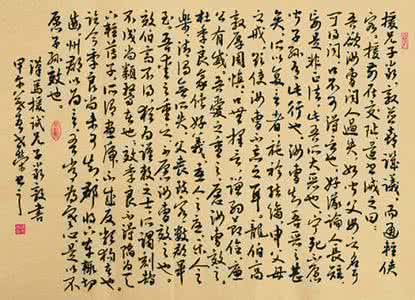 援兄子严敦并喜讥议而通轻侠
客援前在交趾还书诫之曰
吾欲汝曹闻人过失如闻父母之名耳
可得闻口不可得言也好论议人长短
妄是非正法此吾所大恶也宁死不愿
闻子孙有此行也汝曹知吾恶之甚
矣所以复言者施衿结缡申父母
之戒欲使汝曹不忘之耳龙伯高
敦厚周慎口无择言谦约节俭廉
公有威吾爱之重之愿汝曹效之
杜季良豪侠好义忧人之忧乐人之
乐清浊无所失父丧致客数郡毕
至吾爱之重之不愿汝曹效也效
伯高不得犹为谨敕之士所谓刻鹄
不成尚类鹜者也效季良不得陷为天下
轻薄子所谓画虎不成反类狗者也
讫今季良尚未可知郡将下车辄切
齿州郡以为言吾常为寒心是以不
愿子孙效也
马援诫兄子严敦书
甲午